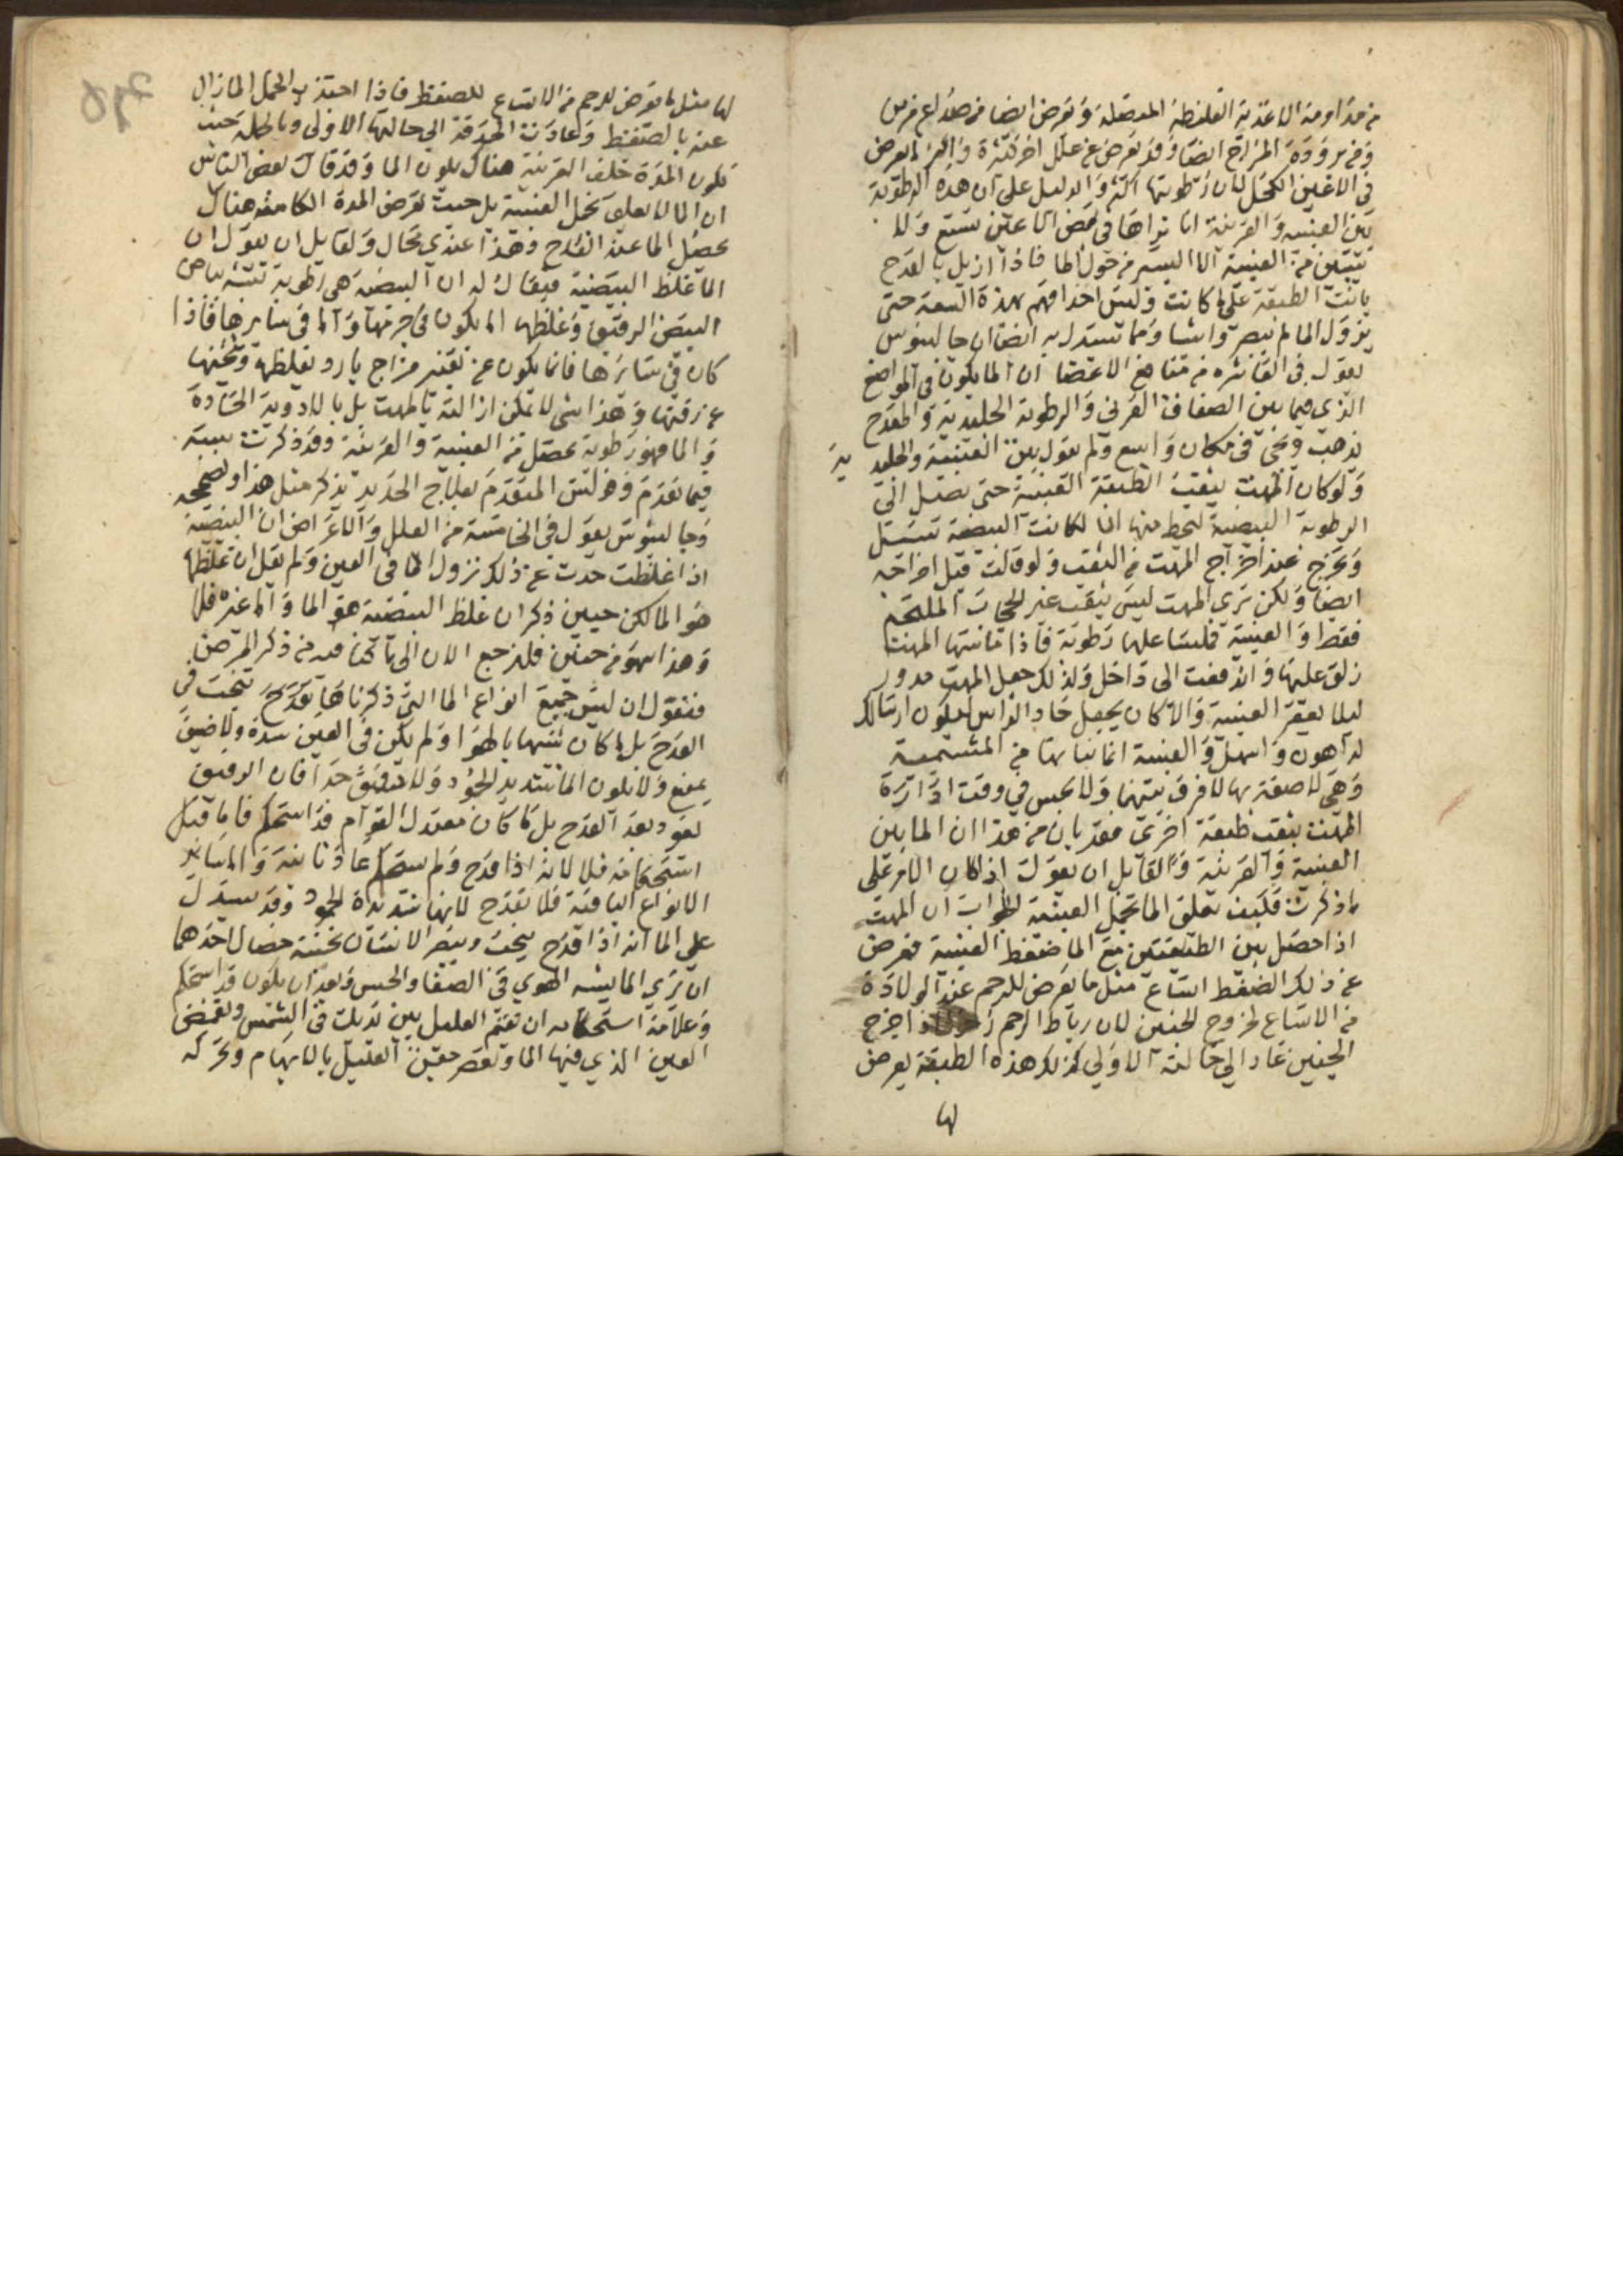 من مداومة الاغذية الغليظة المبصلة وتعرض ايضا من صداع مزمن
ومن برودة المزاج ايضا وقد تعرض عن علل اخر كثيرة واكثر ما يعرض
في الاعين الكحل لان رطوبتها اكثر والدليل على ان هذه الرطوبة
بين العنبية والقرنية انا نراها في بعض الاعين تتسع ولا
يتبين من العنبية الا اليسير من حول الما فاذا ازيل بالقدح
بانت الطبقة على ما كانت وليس احدا فهم بهذه السعة حتى
يزول الما لم يبصروا شيا ومما تستدل به ايضا ان جالينوس
يقول في العاشرة من منافع الاعضا ان الما يكون في المواضع
الذي فيما بين الصفاق القرني والرطوبة الجليدية والمقدح
يذهب ويجي في مكان واسع ولم يقول بين العنبية والجليد ية
ولو كان المهت يثقب الطبقة العنبية حتى يصل الى
الرطوبة البيضية ليحط منها الما لكانت البيضية تسيل
وتخرج عند اخراج المهت من الثقب ولو قالت قبل اخراجه
ايضا ولكن ترى المهت ليس يثقب غير الحجاب الملتحم
فقط والعنبية فملسا عليها رطوبة فاذا ماستها المهت
زلق عليها واندفعت الى داخل ولذلك جعل المهت مدور
ليلا يعقر العنبية والا كان يجعل حاد الراس ليكون ارساله
له اهون واسهل والعنبية انما نباتها من المشيمية
وهي لاصقة بها لا فرق بينهما ولا يحس في وقت ادارة
المهت بثقب طبقة اخرى فقد بان من هذا ان الما بين
العنبية والقرنية ولقايل ان يقول اذا كان الامر على
ما ذكرت فكيف تعلق الما بخمل العنبية الجواب ان المهت
اذا حصل بين الطبقتين مع الما ضغط العنبية فعرض
عن ذلك الضغط اتساع مثل ما يعرض للرحم عند الولادة
من الاتساع لخروج الجنين لان رباط الرحم فاذا خرج
الجنين عاد الى حالته الاولى كذلك هذه الطبقة يعرض
لها
لها مثل ما يعرض للرحم من الاتساع للضغط فاذا اجتذب الخمل الما زال
عنه بالضغط وعادت الحدقة الى حالتها الاولى وبالجملة حيث
تكون المدة خلف القرنية هناك يكون الما وقد قال بعض الناس
ان الما لا يعلق بخمل العنبية بل حيث تعرض المدة الكامنة هناك
يحصل الما عند القدح وهذا عندي محال ولقايل ان يقول ان
الما غلظ البيضية فيقال له ان البيضية هي رطوبة تشبه بياض
البيض الرقيق وغلظها اما يكون في جزء منها واما في سايرها فاذا
كان في سايرها فانما يكون عن تغير مزاج بارد يغلظها ويخثنها
عن رقتها وهذا شي لا يمكن ازالته بالمهت بل بالادوية الحادة
والما فهو رطوبة يحصل بين العنبية والقرنية وقد ذكرت سببه
فيما تقدم وفوليس المتقدم بعلاج الحديد يذكر مثل هذا ويصححه
وجالينوس يقول في الخامسة من العلل والاعراض ان البيضية
اذا غلظت حدث عن ذلك نزول الما في العين ولم يقل ان غلظها
هو الما لكن حنين ذكر ان غلظ البيضية هو الما واما غيره فلا
وهذا سهو من حنين فلنرجع الان الى ما كنا فيه من ذكر المرض
فنقول ان ليس جميع انواع الما التي ذكرناها تقدح ينجب في
القدح بل ما كان شبيها بالهوا ولم يكن في العين سدة ولا ضيق
يمنع ولا يكون الما شديد الجمود ولا دقيق جدا فان الرقيق
يعود بعد القدح بل ما كان معتدل القوام قد استحكم فاما قبل
استحكامه فلا لانه اذا قدح ولم يستحكم عاد ثانية واما ساير
الانواع الباقية فلا تقدح لانها شديدة الجمود وقد يستدل
على الما انه اذا قدح ينجب ويبصر الانسان بخمسة خصال احدهما
ان ترى الما يشبه الهوي في الصفا والحس وبعد ان يكون قد استحكم
وعلامة استحكامه ان تقيم العليل بين يديك في الشمس وتغمض
العين الذي فيها الما وتعصر جفن العليل بالابهام وتحركه